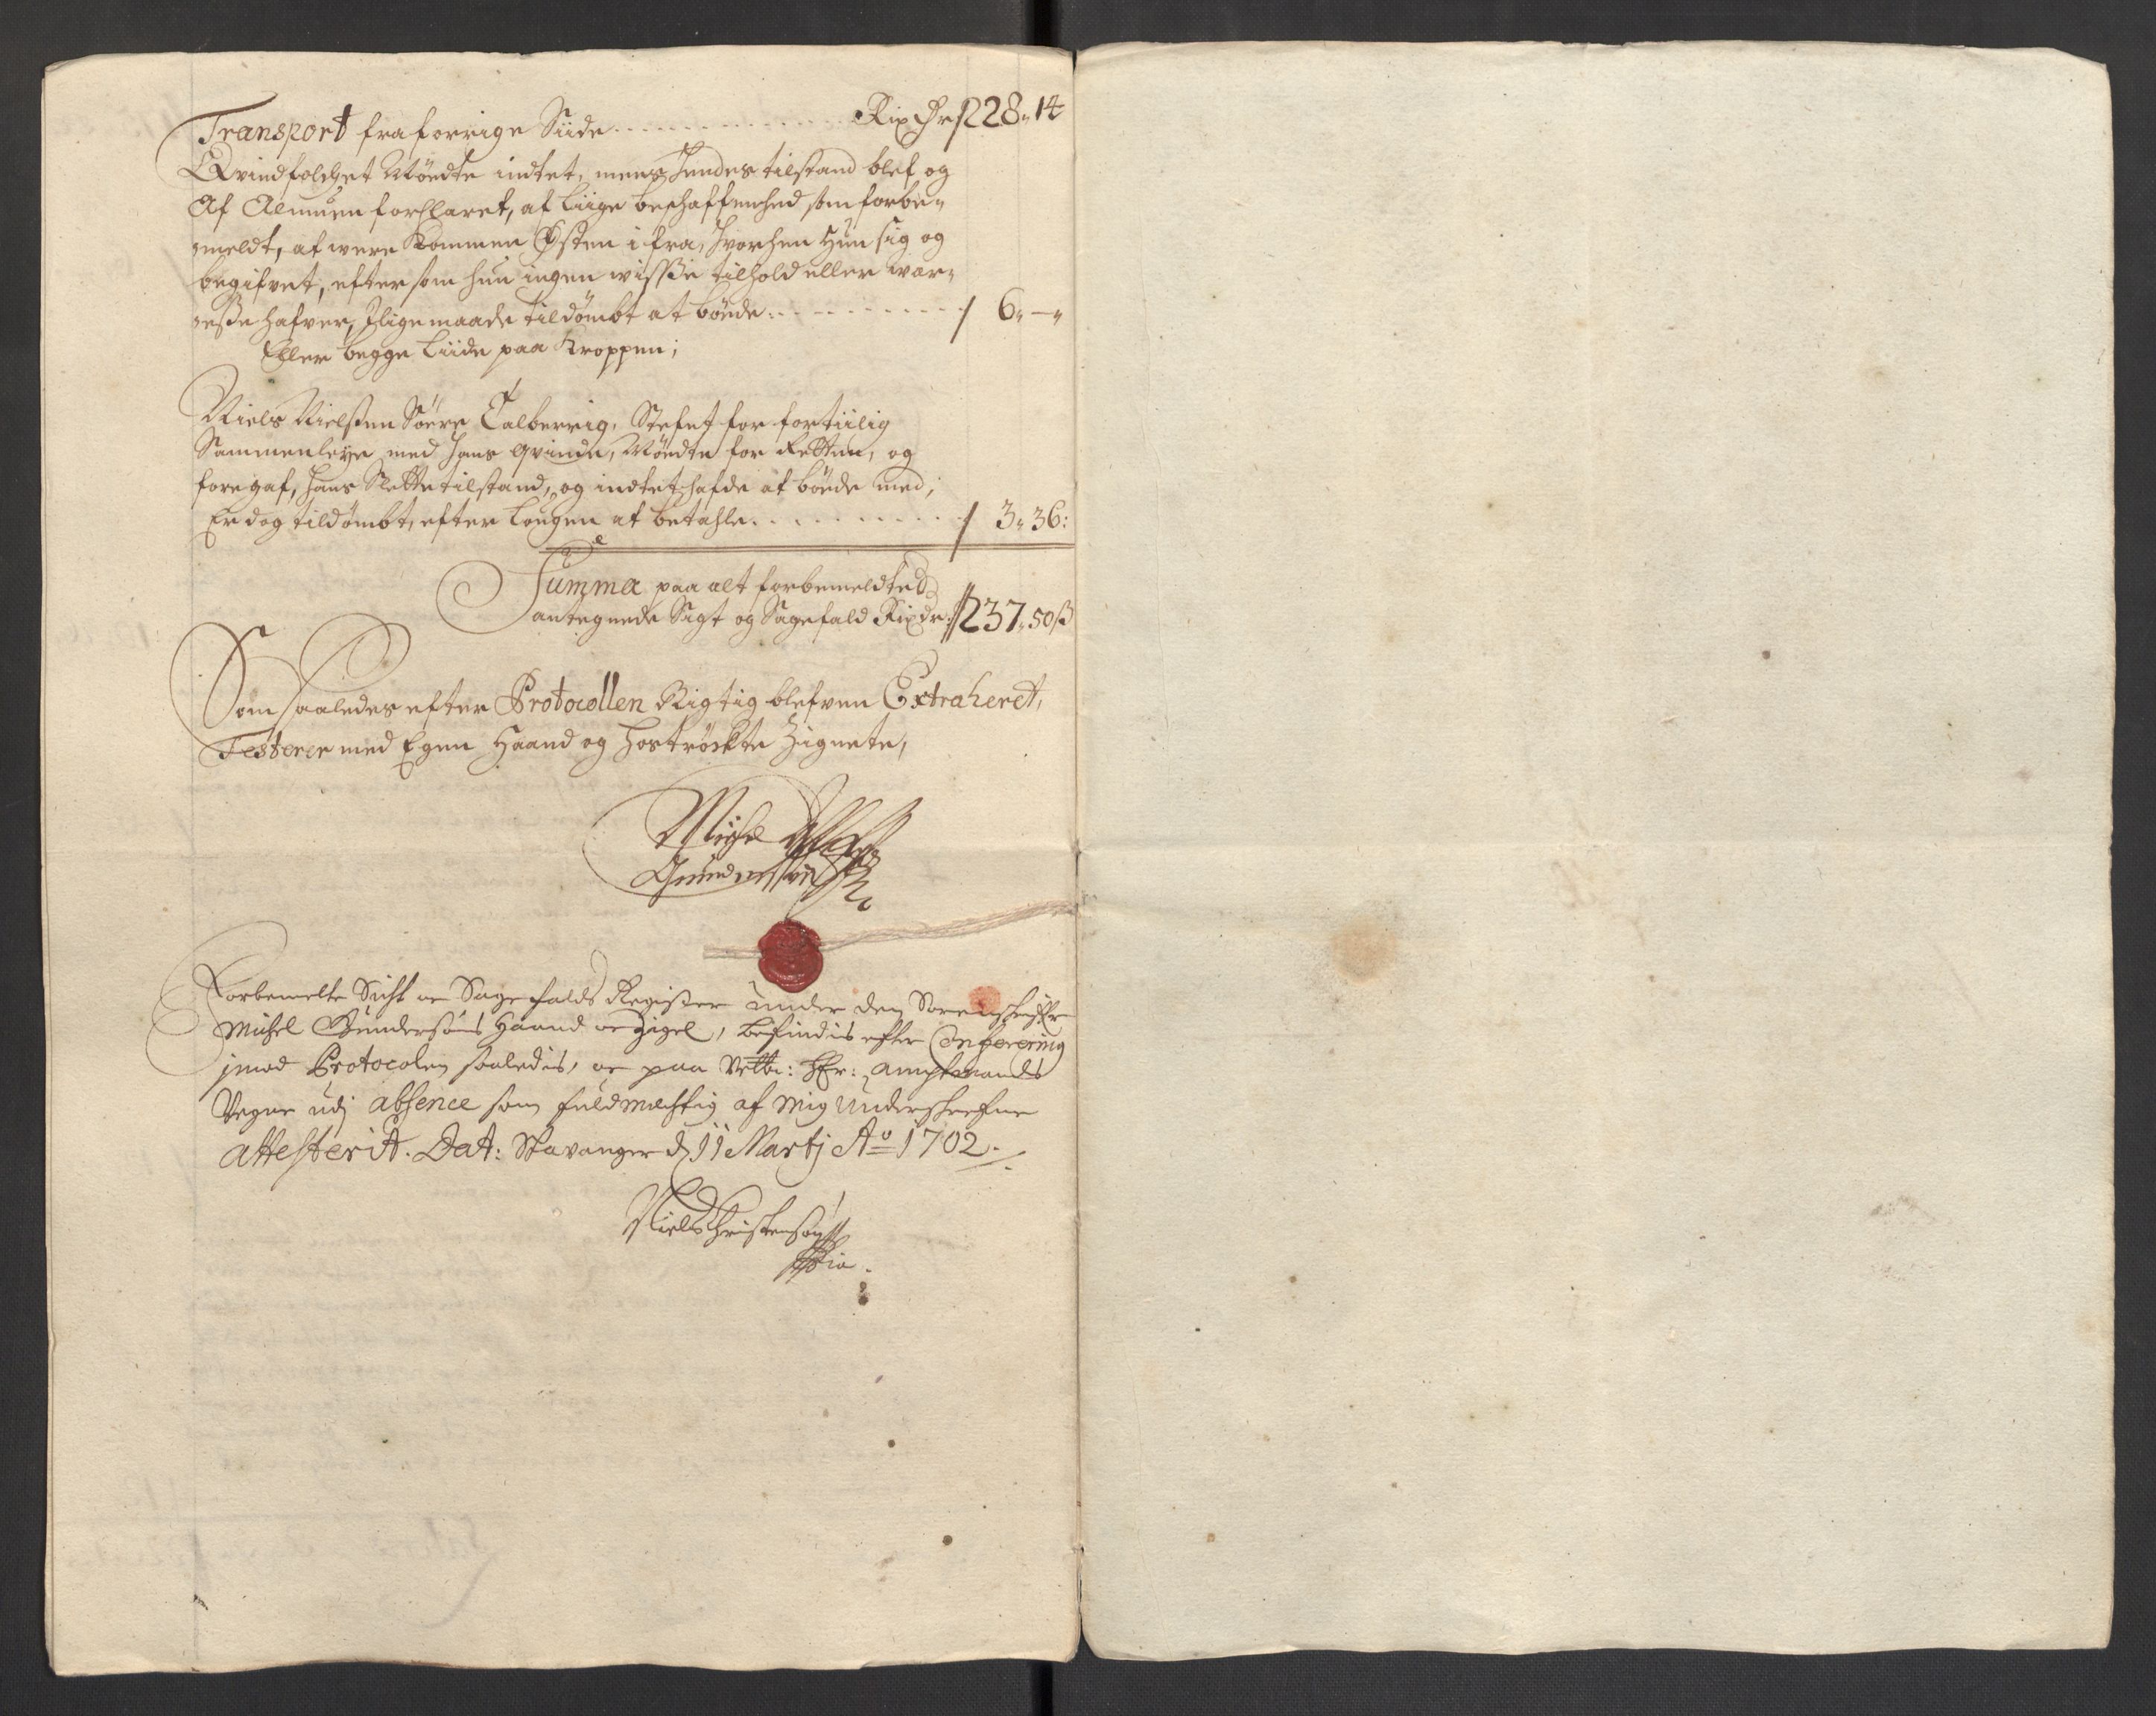 Transport fra forrige Siide . . . . . . . . . . . Rixdr 228 „ 14
Qvindfolchet Mødte indtet, mens hendes tilstand blef og
Af Almuen forklaret, af liige beschaffenhed som forbe„
„meldt, at were kommen Østen i fra, hvorhen Hun sig og
begifvet, eftersom hun ingen wisse tilhold eller wær„
„else hafver, Jligemaade tildømbt at bøde . . . . . . . . . / 6 „ — „
Eller begge Liide paa Kroppen;
Niels Nielssen Søere Talberrig, Stefnt for fortiilig
Sammenleye med hans qvinde, Mødte for Retten, og
foregaf, hans Slette tilstand, og indtet hafde at bøde med;
Er dog tildømbt, efter Lougen at betahle . . . . . . . . . / 3 „ 36:
Summa paa alt forbemeldte
antegnede Sigt og Sagefald Rixdr: 237 „ 50 β
Som saaledes efter Protocollen Rigtig blefven Extraheret,
Testerer med Egen Haand og hostrøckte Zignete,
Michel
Gundersen
Forbemelte Sicht oc Sagefalds Register under den Sorenschrifr
Michel Gundersøns Haand oc Zigel, befindis efter Conferering
jmod Protocolen saaledis, oc paa Velbr: Hr: Amptmands
Vegne udj absence som fuldmechtig af mig underschrefne
attesterit. Dat: Stavanger d 11 Martj Ao 1702.
Niels Christensøn